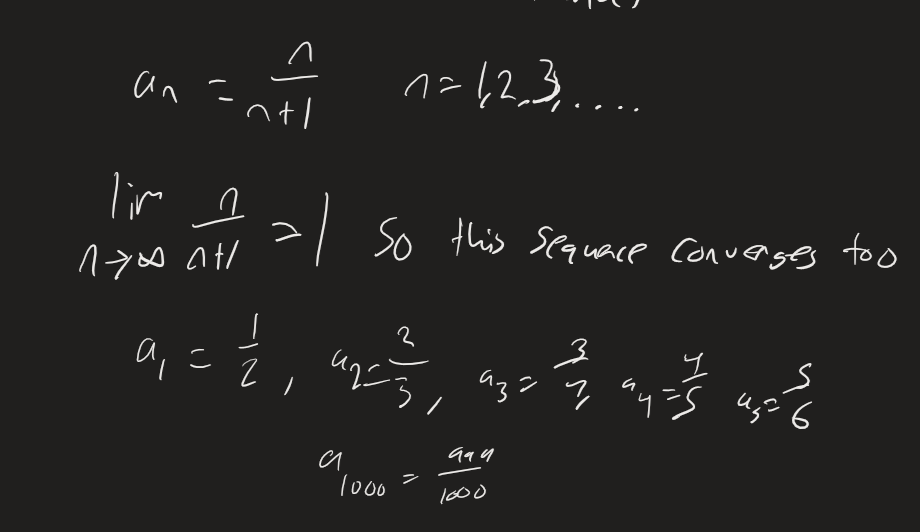 aₙ = n/(n+1) n = 1, 2, 3, ....
lim n→∞ n/(n+1) = 1 So this sequence converges too
a₁ = 1/2, a₂ = 2/3, a₃ = 3/4, a₄ = 4/5 a₅ = 5/6
a₁₀₀₀ = 999/1000